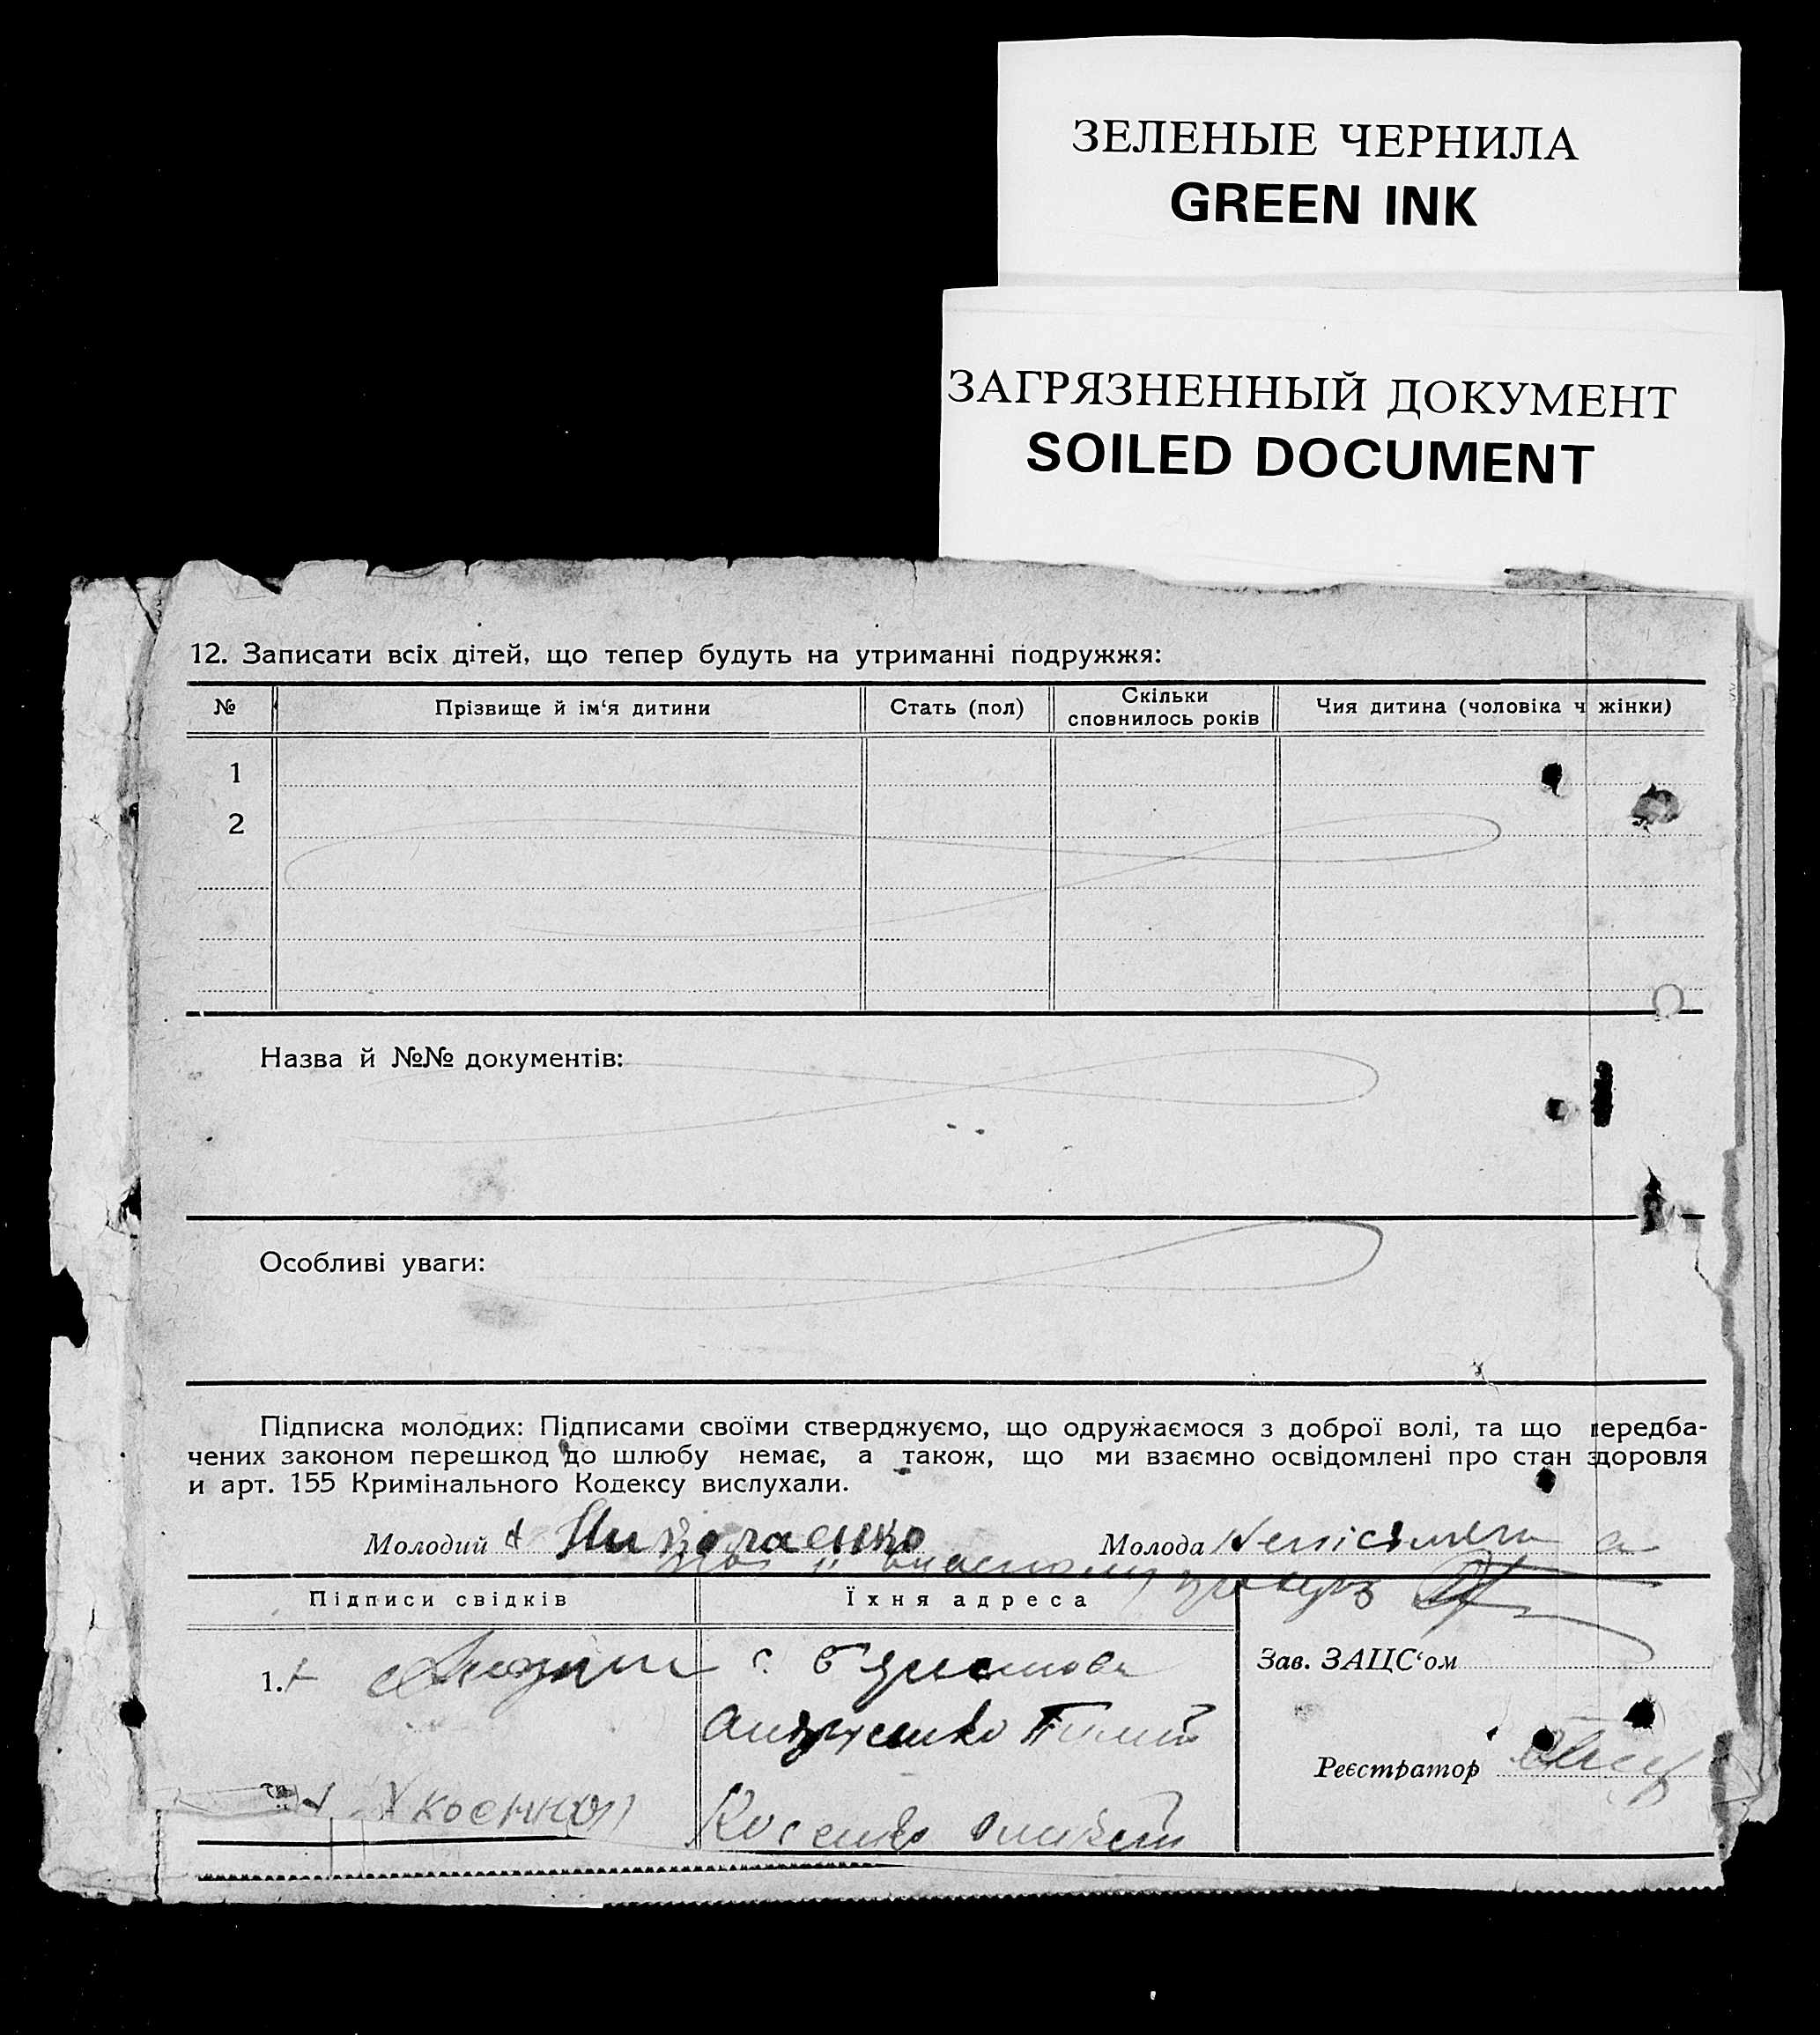 ЗЕЛЕНЫЕ ЧЕРНИЛА
GREEN INK
ЗАГРЯЗНЕННЫЙ ДОКУМЕНТ
SOILED DOCUMENT
12. Записати всіх дітей, що тепер будуть на утриманні подружжя:
№ Прізвище й ім'я дитини Стать (пол) Скільки сповнилось років Чия дитина (чоловіка ч жінки)
1
2
Назва й №№ документів:
Особливі уваги:
Підписка молодих: Підписами своїми стверджуємо, що одружаємося з доброї волі, та що передба-
чених законом перешкод до шлюбу немає, а також, що ми взаємно освідомлені про стан здоровля
и арт. 155 Кримінального Кодексу вислухали.
Молодий Николаенко Молода
Підписи свідків Їхня адреса
Зав. ЗАЦС'ом
1. с.
Андрусенко
Реєстратор
Косенко